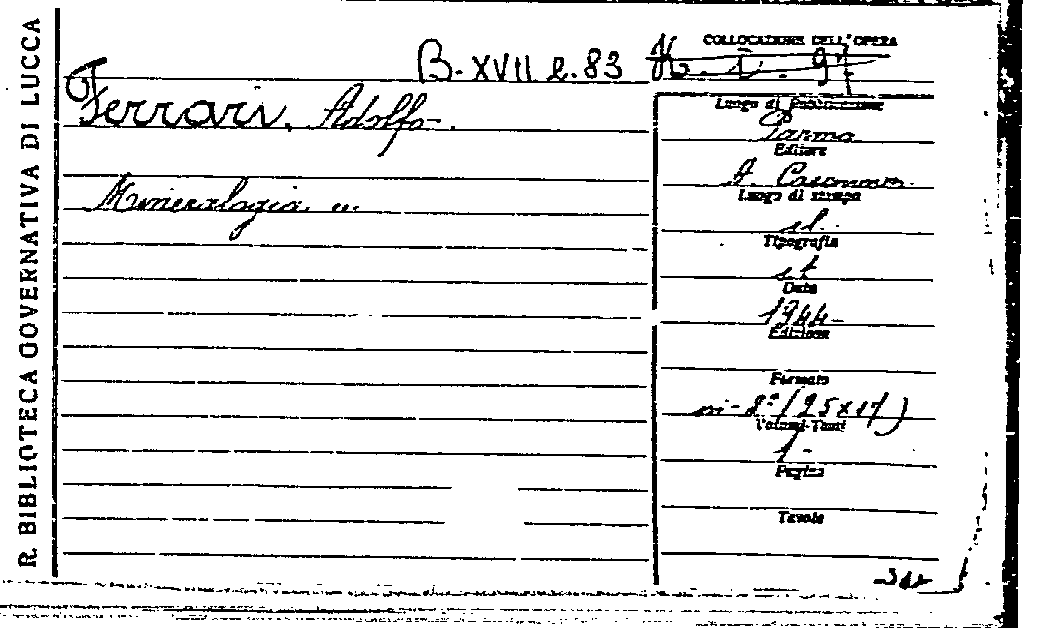 R. BIBLIOTECA GOVERNATIVA DI LUCCA
COLLOCAZIONE DELL'OPERA
B. XVII e. 83
Ferrari, Adolfo
Mineralogia ...
Luogo di Pubblicazione
Parma
Editore
Luogo di stampa
s.l.
Tipografia
s.t.
Data
1944
Edizione
Formato
in-8° (25x17)
Volumi-Tomi
1
Pagine
Tavole